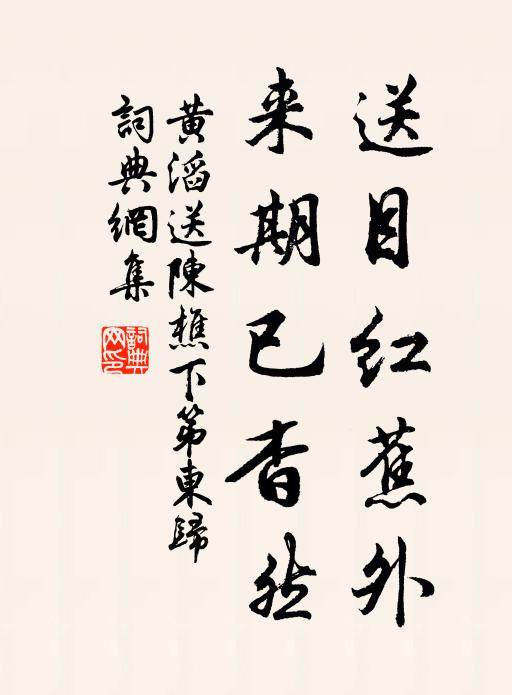 送目红蕉外
来期已杳然
黄滔送陳樵下第東歸
詞典網集
詞典網印